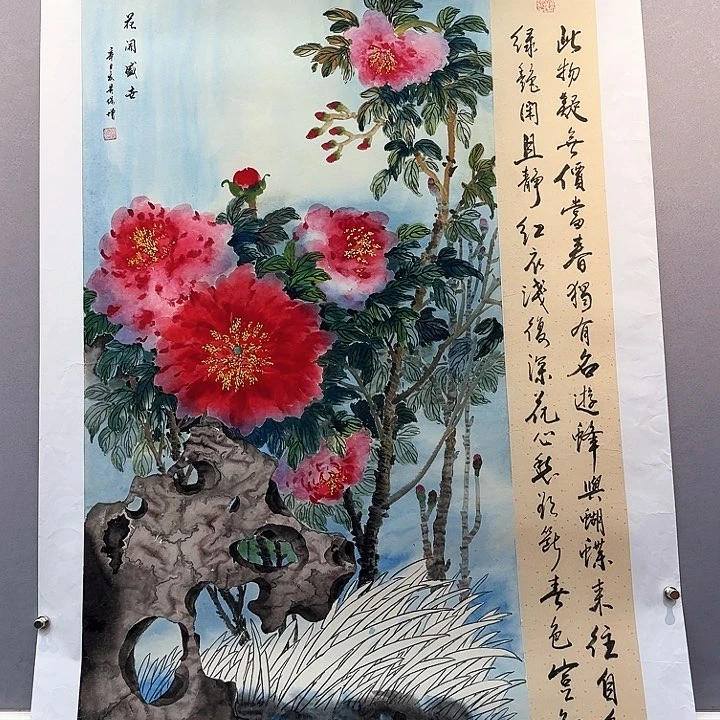 此物疑無價當春獨有名遊蜂與蝴蝶來往自
綠艷閑且靜紅衣淺復深花心愁欲斷春色豈
花開盛世